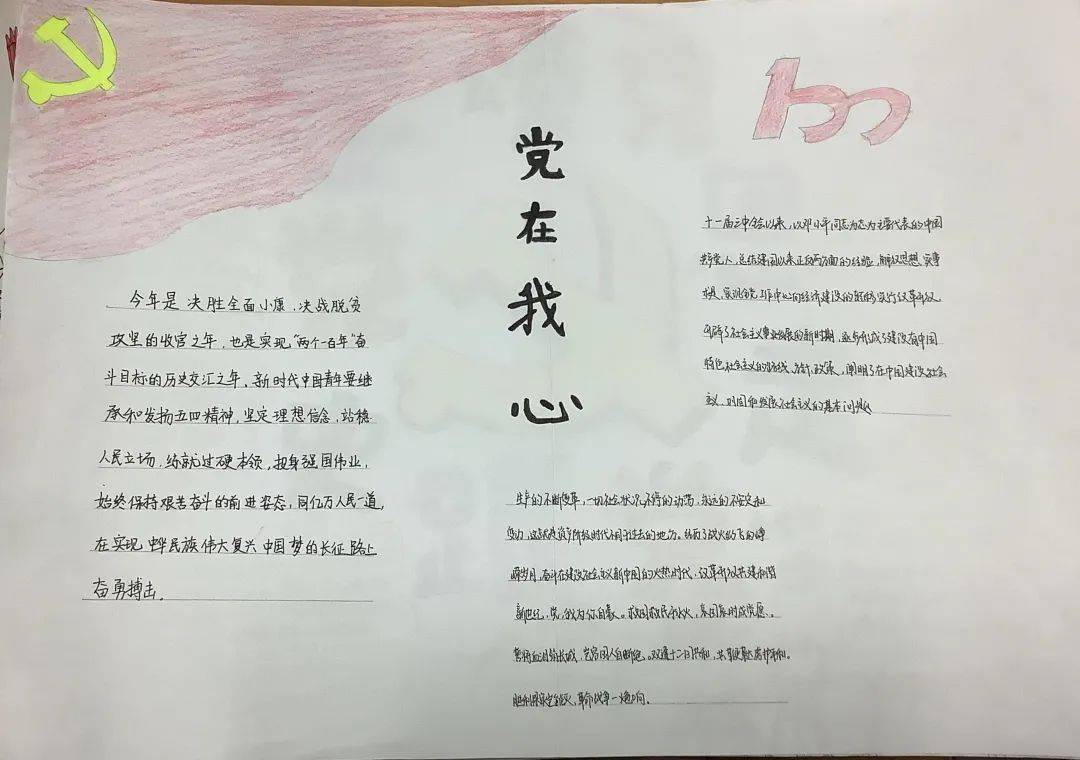 党在我心
100
今年是决胜全面小康、决战脱贫
攻坚的收官之年，也是实现"两个一百年"奋
斗目标的历史交汇之年，新时代中国青年要继
承和发扬五四精神，坚定理想信念，站稳
人民立场，练就过硬本领，投身强国伟业，
始终保持艰苦奋斗的前进姿态，同亿万人民一道，
在实现中华民族伟大复兴中国梦的长征路上
奋勇搏击。
十一届三中全会以来，以邓小平同志为主要代表的中国
共产党人，总结建国以来正反两方面的经验，解放思想，实事
求是，实现全党工作中心向经济建设的转移，实行改革开放，
开辟了社会主义事业发展的新时期，逐步形成了建设有中国
特色社会主义的路线、方针、政策，阐明了在中国建设社会
主义、巩固和发展社会主义的基本问题
生产的不断变革，一切社会状况不停的动荡，永远的不安定和
变动，这就是资产阶级时代不同于过去的地方。经历了战火纷飞的峥
嵘岁月，奋斗在建设社会主义新中国的火热时代，改革开放共建和谐
新世纪，党，我为你自豪。救国救民
胜利，革命战争一炮响。